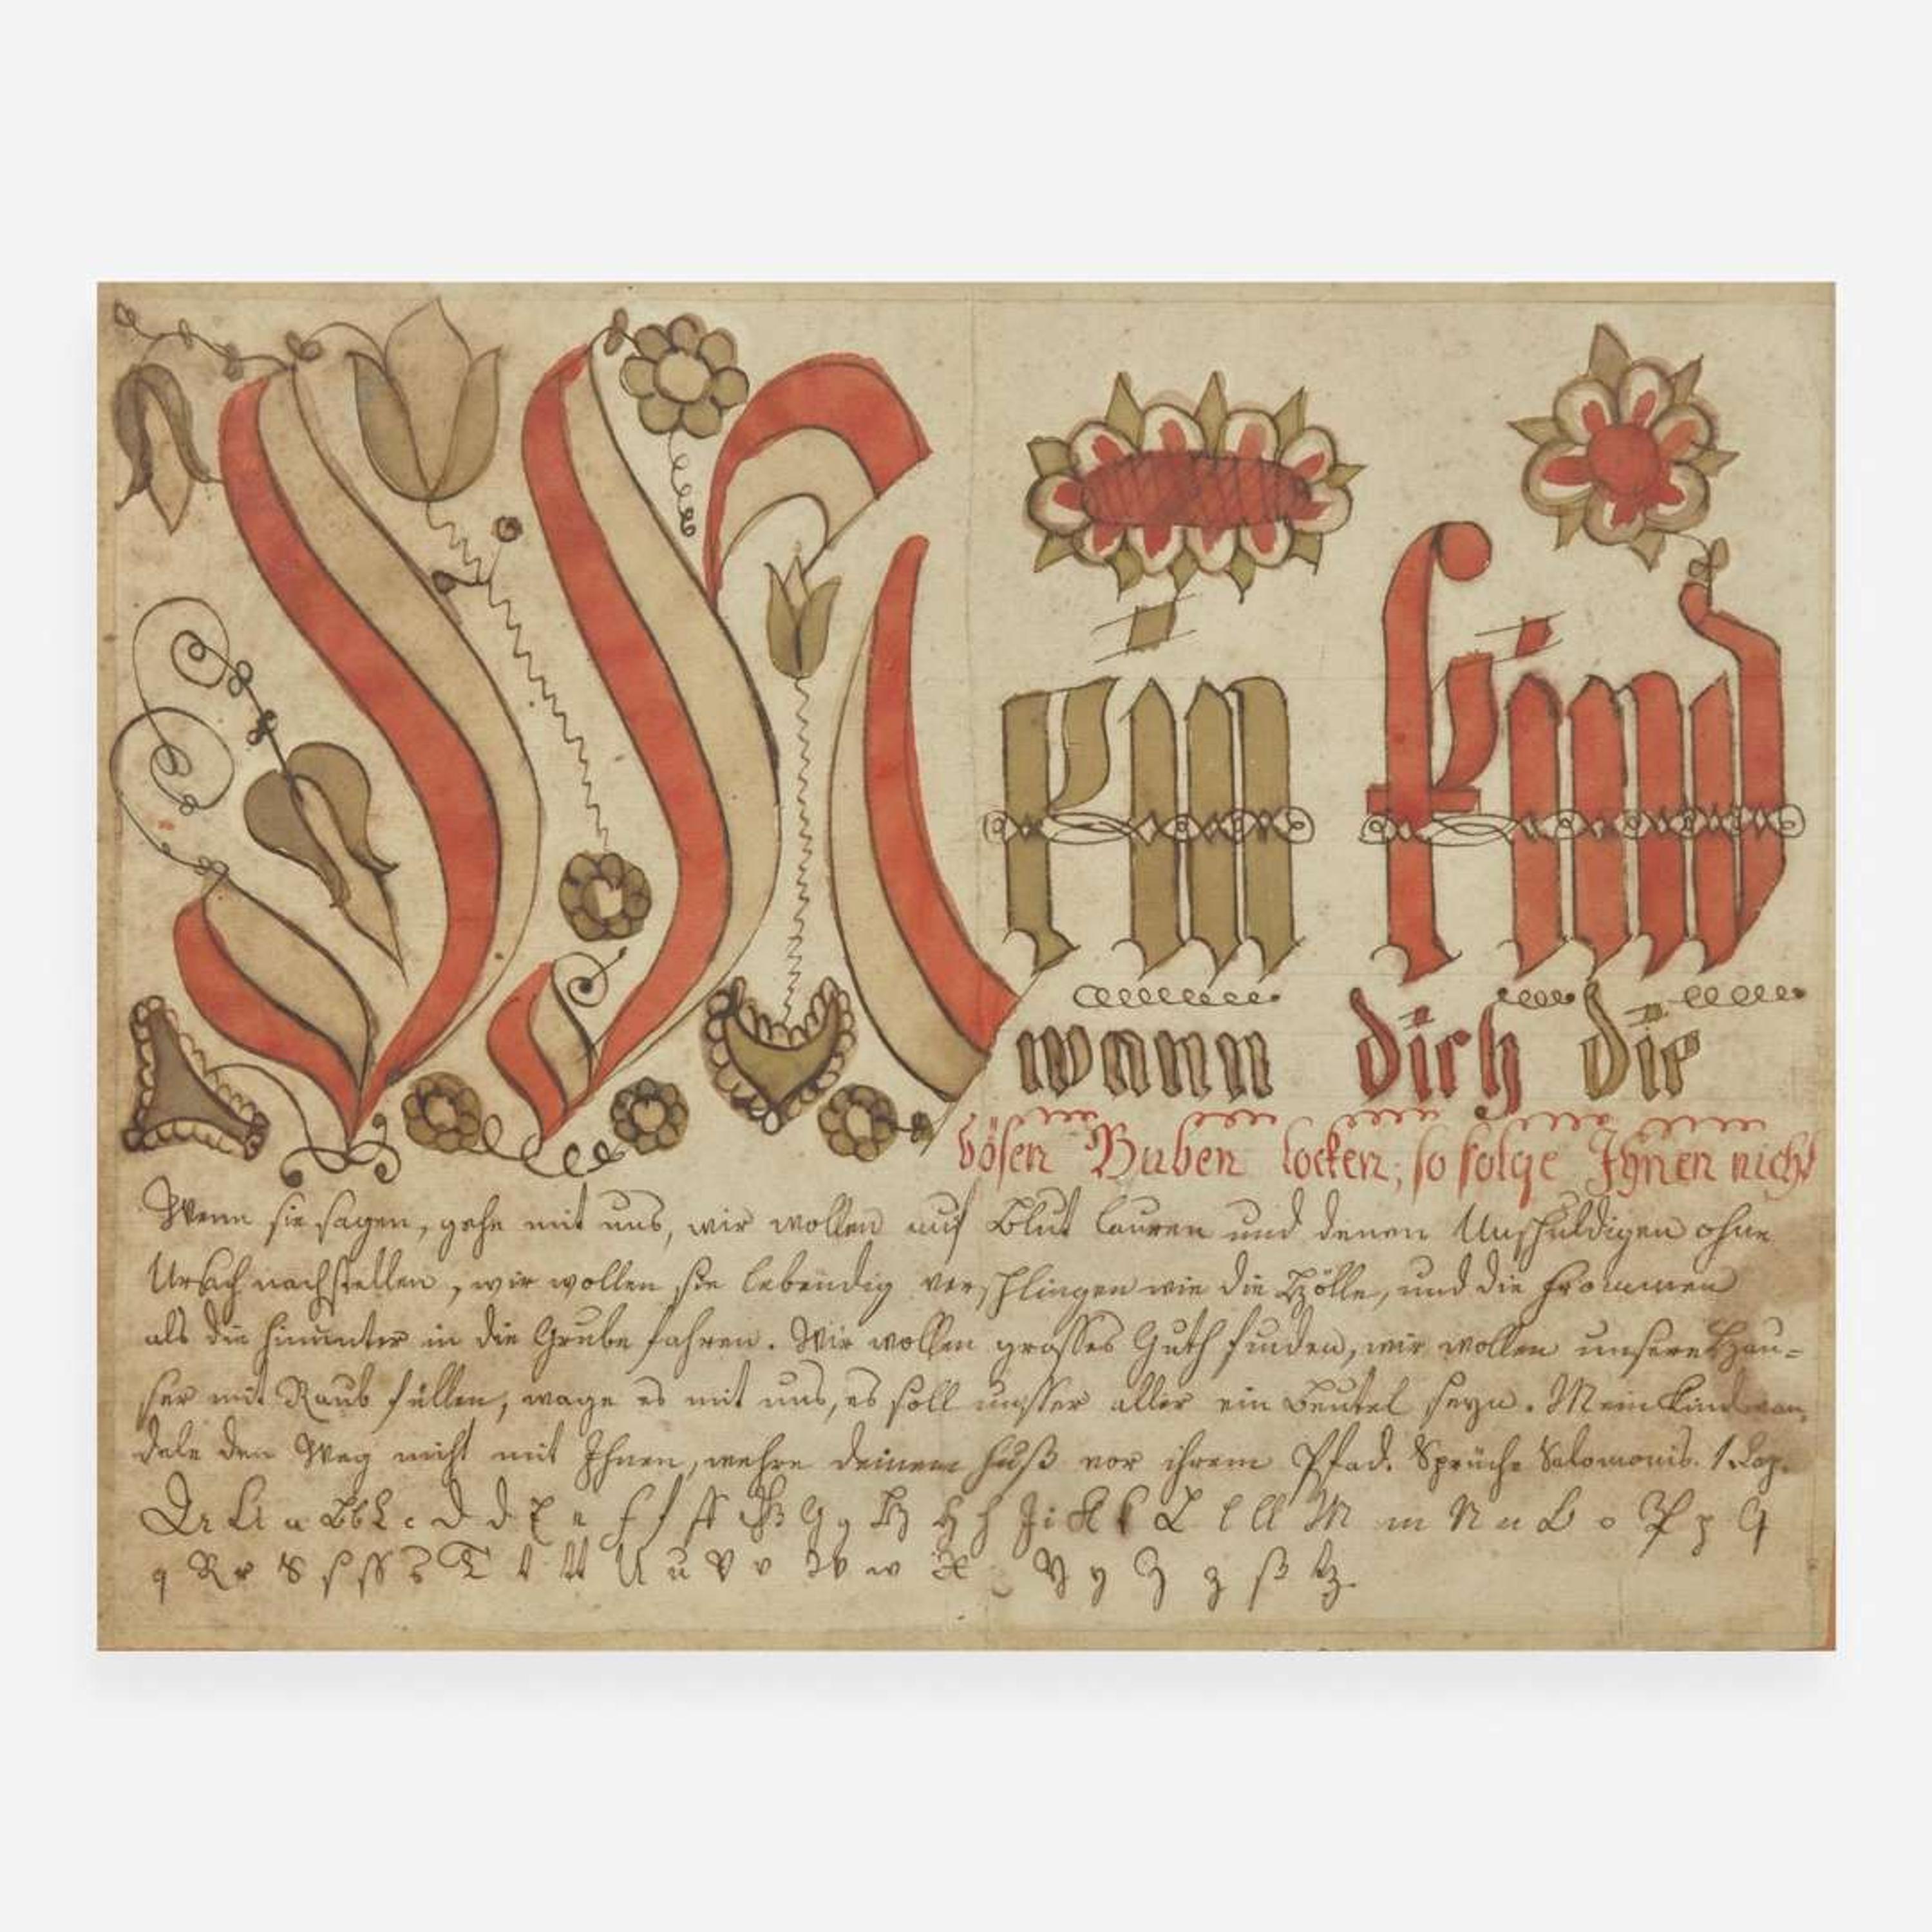 Mein kind
wann dich die
bösen Buben locken; so folge Ihnen nicht
Wenn sie sagen, gehe mit uns, wir wollen auf Blut lauren und denen Unschuldigen ohne
Ursach nachstellen, wir wollen sie lebendig verschlingen wie die Hölle, und die frommen
als die hinunter in die Grube fahren. Wir wollen grosses Guth finden, wir wollen unsere Häu=
ser mit Raub füllen, wage es mit uns, es soll unsser aller ein Beutel seyn. Mein kind wan,
dele den Weg nicht mit Ihnen, wehre deinem fuß vor ihrem Pfad. Sprüche Salomonis. 1. Cap.
A a B b C c D d E e f f ff G g H h J i K k L l ll M m N n O o P p Q
q R r S s ss T t tt U u V v W w X Y y Z z ß tz.